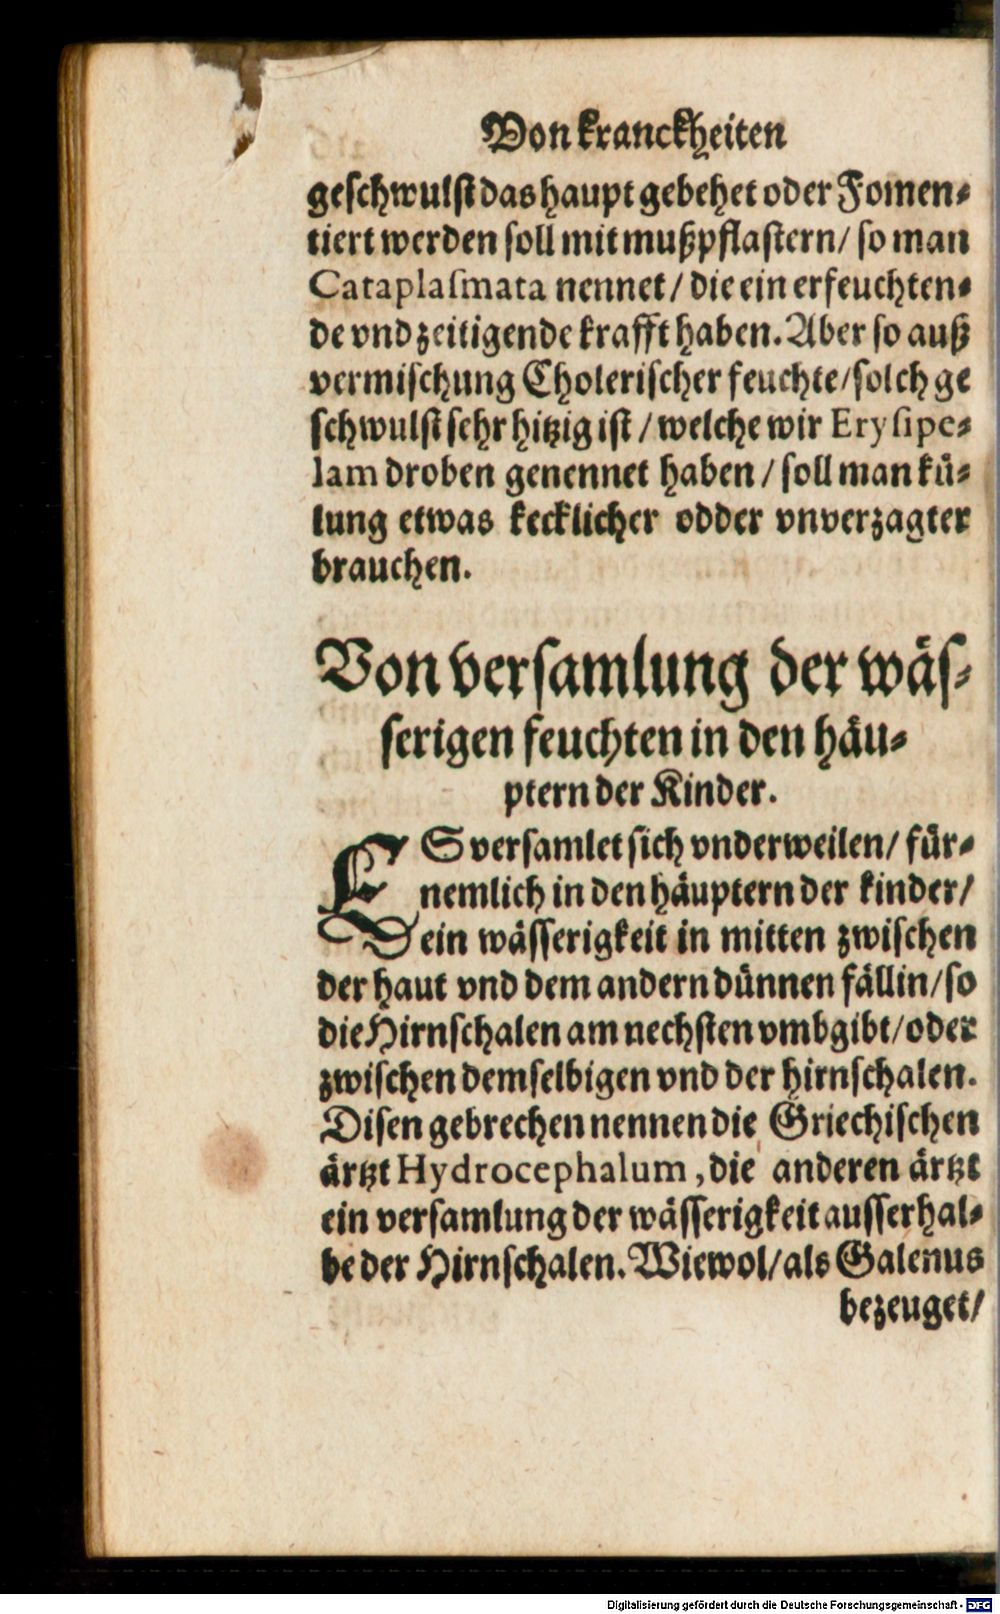 Von kranckheiten
geschwulst das haupt gebehet oder Fomen-
tiert werden soll mit mußpflastern/ so man
Cataplasmata nennet/ die ein erfeuchten-
de vnd zeitigende krafft haben. Aber so auß
vermischung Cholerischer feuchte/ solch ge
schwulst sehr hitzig ist/ welche wir Erysipe-
lam droben genennet haben/ soll man kuͤ-
lung etwas kecklicher odder vnverzagter
brauchen.
Von versamlung der wäs-
serigen feuchten in den häu-
ptern der Kinder.
ES versamlet sich vnderweilen/ fuͤr-
nemlich in den häuptern der kinder/
ein wässerigkeit in mitten zwischen
der haut vnd dem andern dünnen fällin/ so
die Hirnschalen am nechsten vmbgibt/ oder
zwischen demselbigen vnd der hirnschalen.
Disen gebrechen nennen die Griechischen
ärtzt Hydrocephalum, die anderen ärtzt
ein versamlung der wässerigkeit ausserhal-
be der Hirnschalen. Wiewol/ als Galenus
bezeuget/
Digitalisierung gefördert durch die Deutsche Forschungsgemeinschaft - DFG